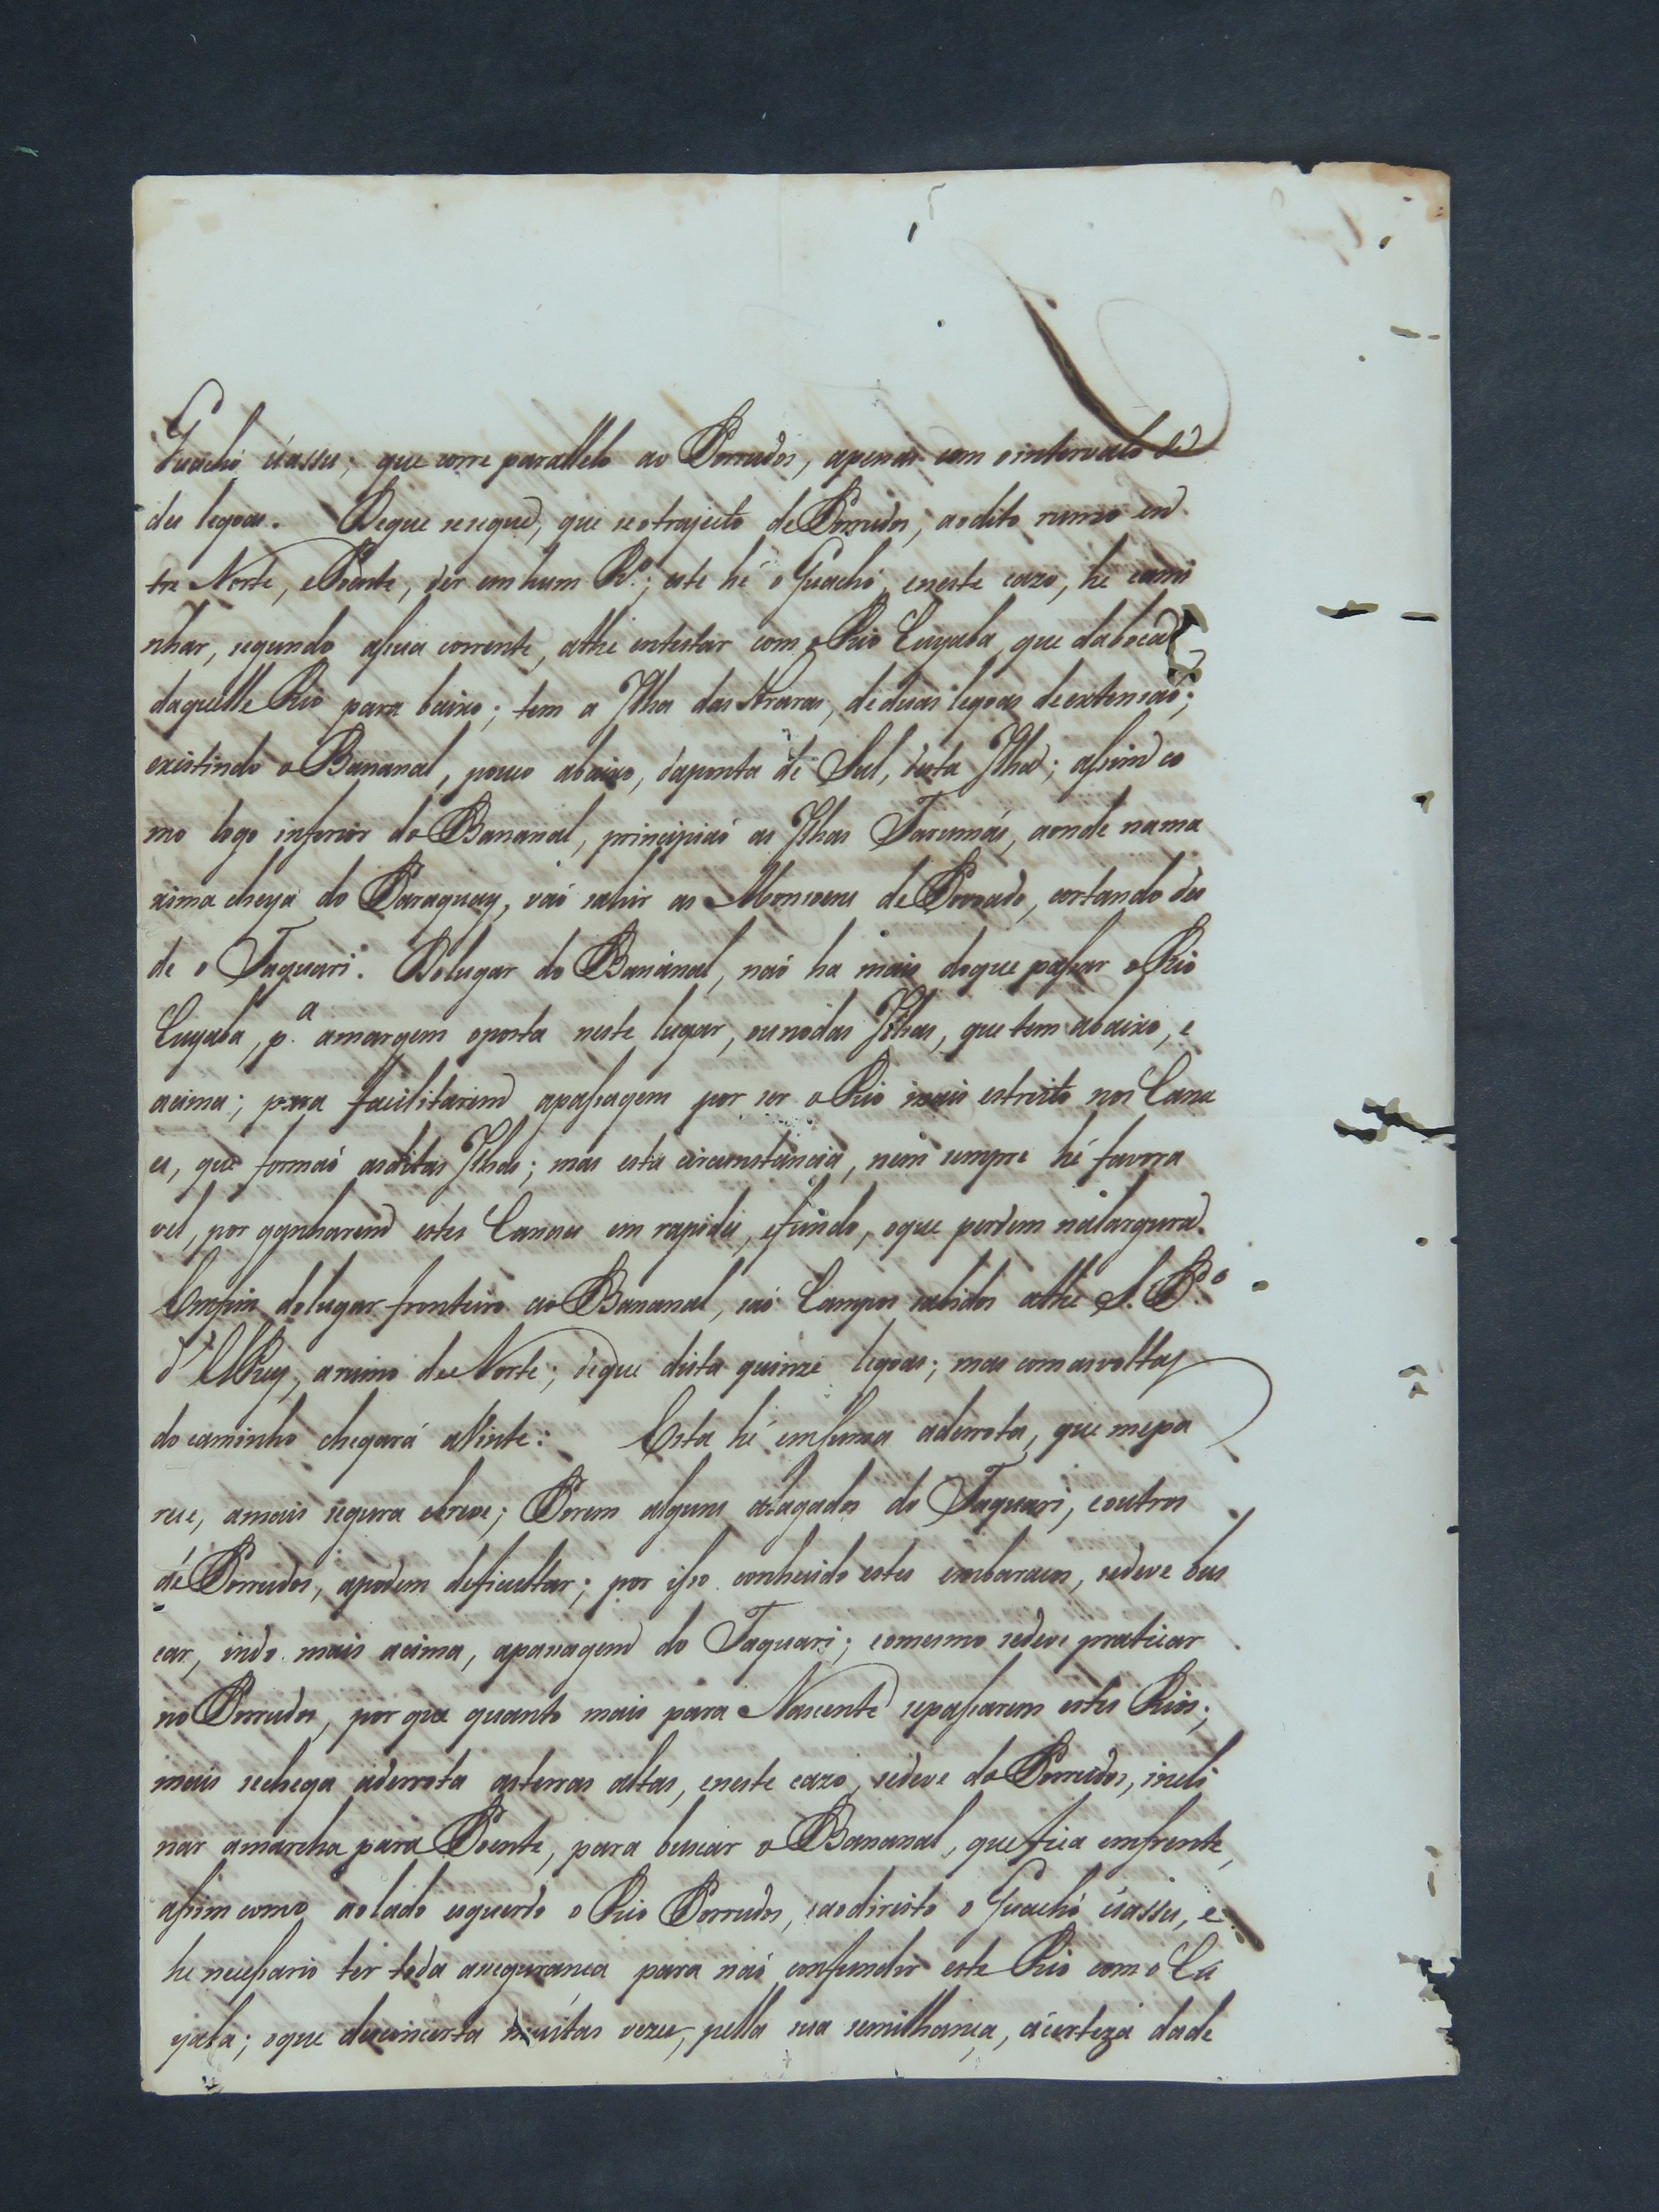 Guachó úassu; que corre parallelo ao Porrudos, apenas com ointervalo de
des legoas. Deque resegue, que seotrajeito de Porrudos, aodito rumo en
tre Norte, ePoente, der em hum R.º; este hé o Guachó, eneste cazo, hé cami
nhar, segundo asua corrente, athe entestar com o Rio Cuyaba, que daboca
daquelle Rio para baixo; tem a Ilha das Araras, deduas legoas deextensaõ;
existindo o Bananal, pouco abaixo, daponta de Sul, desta Ilha; assim co
mo logo inferior do Bananal, principiaõ as Ilhas Tarumás, aonde nama
xima cheya do Paraguay, vaõ sahir as Monsoens de Povoado, cortando des
de o Taquari. Dolugar do Bananal, naõ ha mais doque passar o Rio
Cuyaba, p.ª amargem oposta neste lugar, ounodas Ilhas, que tem abaixo, e
acima; para facilitarem apassagem por ser o Rio mais estreito nos Cana
es, que formaõ asditas Ilhas; mas esta circunstancia, nem sempre hé favora
vel, por ganharem estes Canaes em rapides, efundo, oque perdem nalargura.
Emfim dolugar fronteiro ao Bananal, saõ Campos sabidos athe S. P.º
d'ElRey, arumo de Norte; deque dista quinze legoas; mas com asvoltas
do caminho chegará aVinte: Esta hé emsuma aderrota, que mepa
rece, amais segura ebreve; Porem alguns alagados do Taquari, eoutros
dé Porrudos, apodem deficultar; por isso conhecido estes embaracos, sedeve bus
car, indo mais acima, apassagem do Taquari; eomesmo sedeve praticar
no Porrudos, por que quanto mais para Nascente sepassarem estes Rios;
mais sechega aderrota asterras altas, eneste cazo, sedeve do Porrudos, incli
nar amarcha para Poente, para buscar o Bananal, quefica emfrente,
assim como aolado esquerdo o Rio Porrudos, eaodireito o Guachó úassu, e
he necessario ter toda asegurança para naõ confundir este Rio com o Cu
yaba; oque desconcerta muitas vezes, pella sua semilhança, acerteza dade